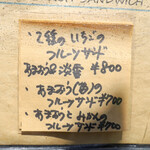 SANDWICH
・2種の いちごの
フルーツサンド
あまおう&淡雪 ¥800
・あまおう(苺)の
フルーツサンド ¥700
・あまおうと みかんの
フルーツサンド ¥700